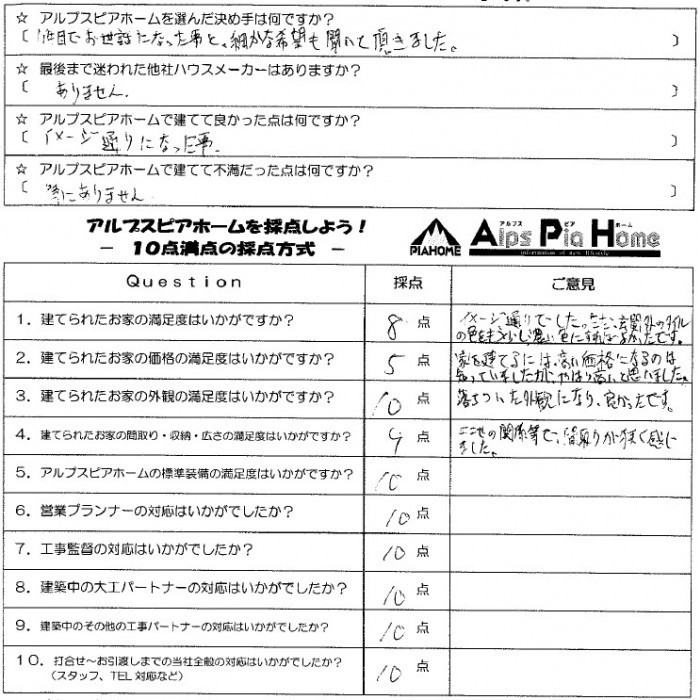 ☆ アルプスピアホームを選んだ決め手は何ですか?
〔 1件目でお世話になった事と、細かな希望も聞いて頂きました。 〕
☆ 最後まで迷われた他社ハウスメーカーはありますか?
〔 ありません. 〕
☆ アルプスピアホームで建てて良かった点は何ですか?
〔 イメージ通りになった事. 〕
☆ アルプスピアホームで建てて不満だった点は何ですか?
〔 特にありません 〕
アルプスピアホームを採点しよう!
- 10点満点の採点方式 -
PIAHOME
アルプス ピア ホーム
Alps Pia Home
Question 採点 ご意見
1. 建てられたお家の満足度はいかがですか? 8 点 イメージ通りでした。ただ、玄関外のタイル
の色をもう少し濃い色にすればよかったです。
2. 建てられたお家の価格の満足度はいかがですか? 5 点 家を建てるには、高い価格になるのは
知っていましたが、やはり高いと思いました。
3. 建てられたお家の外観の満足度はいかがですか? 10 点 落ちついた外観になり、良かったです。
4. 建てられたお家の間取り・収納・広さの満足度はいかがですか? 9 点 の関係等で、間取りが狭く感じ
ました。
5. アルプスピアホームの標準装備の満足度はいかがですか? 10 点
6. 営業プランナーの対応はいかがでしたか? 10 点
7. 工事監督の対応はいかがでしたか? 10 点
8. 建築中の大工パートナーの対応はいかがでしたか? 10 点
9. 建築中のその他の工事パートナーの対応はいかがでしたか? 10 点
10. 打合せ~お引渡しまでの当社全般の対応はいかがでしたか? 10 点
(スタッフ、TEL対応など)